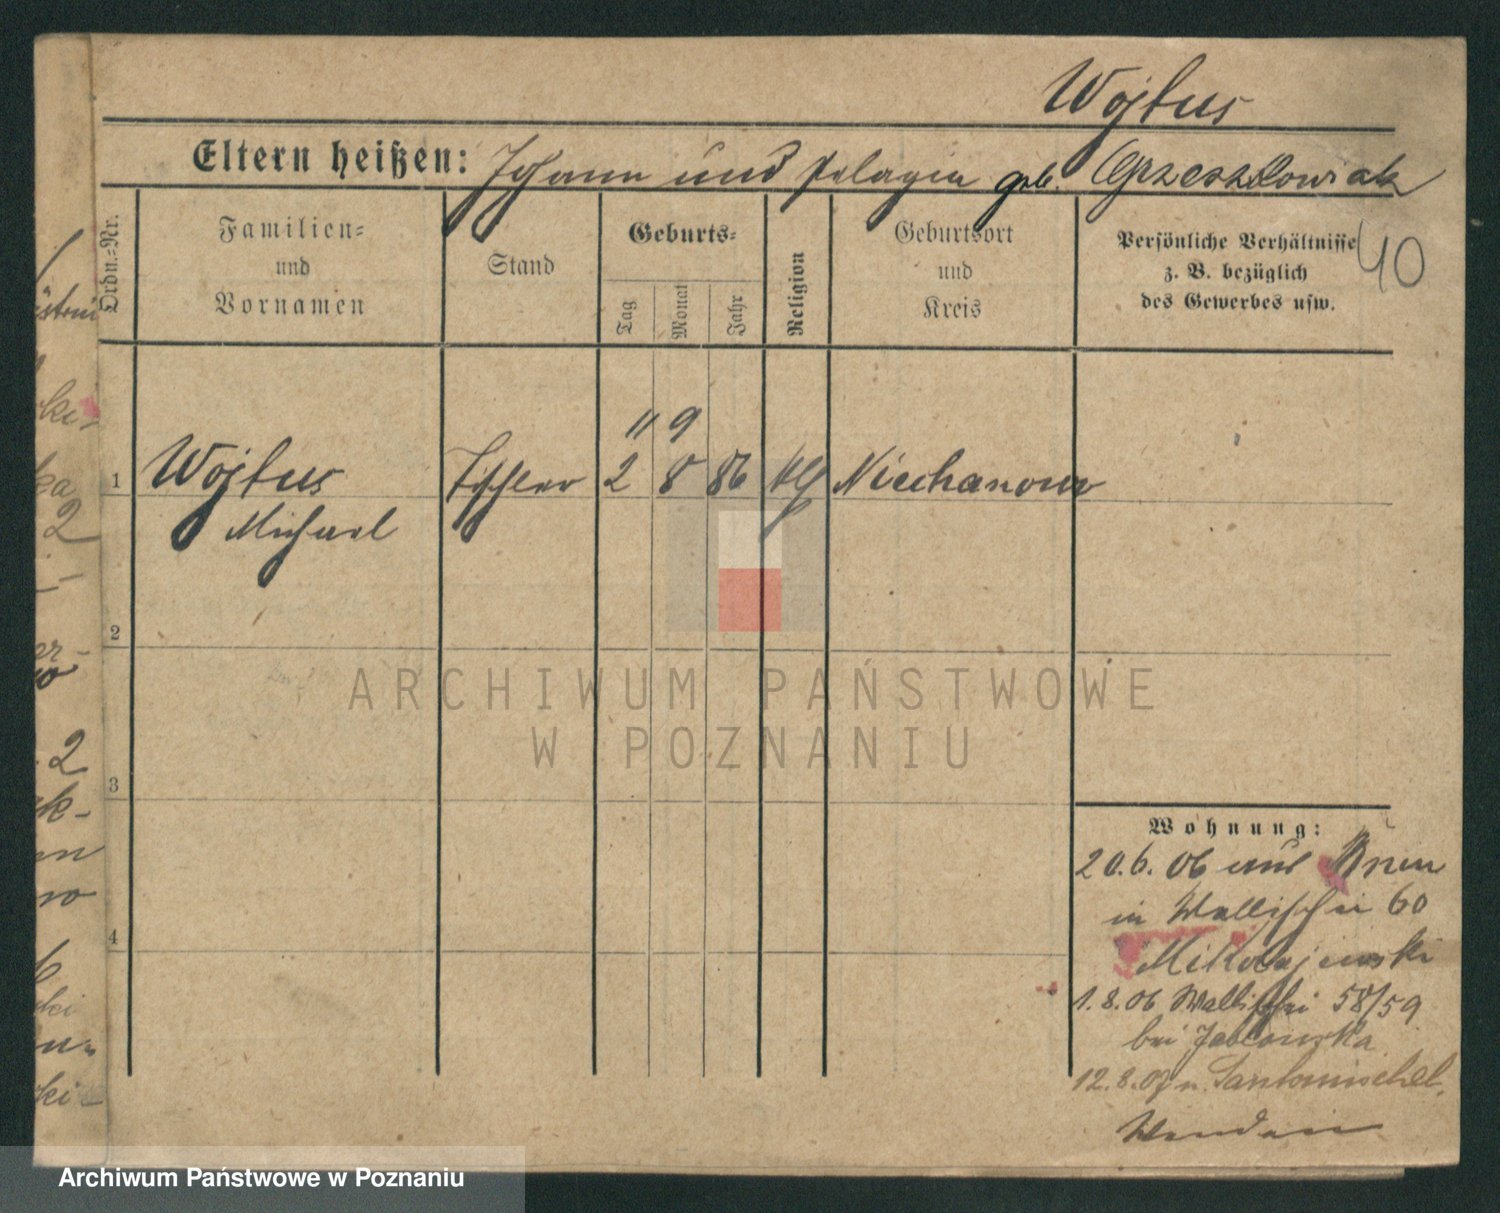 Wojtus
Eltern heißen: Johann und Pelagia geb. Grzeszkowiak
Ordn.-Nr.
Familien-
und
Vornamen
Stand
Geburts-
Tag
Monat
Jahr
Religion
Geburtsort
und
Kreis
Persönliche Verhältnisse
z. B. bezüglich
des Gewerbes usw.
40
11 9
1 Wojtus Tischler 2 8 86 Niechanowo
Michael
2
3
4
Wohnung:
20.6.06 aus
in Wallischei 60
Mikolajewski
1.8.06 Wallischei 58/59
bei Jablonska
12.8.07 n. Santomischel,
Wenden
2
2
ki-
no
ki-
ARCHIWUM PAŃSTWOWE
W POZNANIU
Archiwum Państwowe w Poznaniu